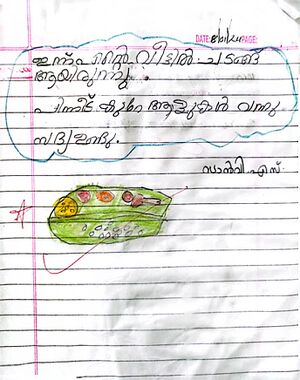 DATE: PAGE:
ഇന്ന് എന്റെ വീട്ടിൽ ചടങ്ങ്
ആയിരുന്നു.
പിന്നീട് കുറേ ആളുകൾ വന്നു
സദ്യ ഉണ്ടു.
സാൻവി എസ്